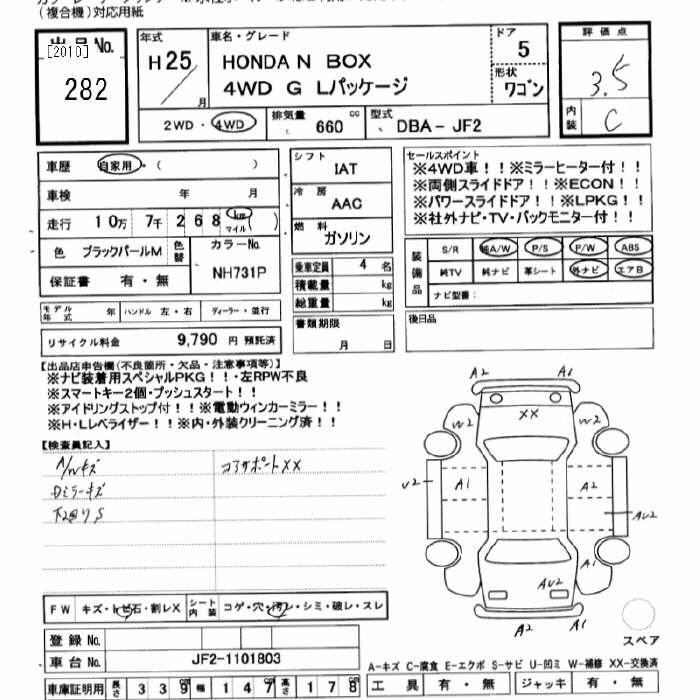 (複合機)対応用紙
出品No.
[2010]
282
年式
H25
月
車名・グレード
HONDA N BOX
4WD G Lパッケージ
ドア
5
形状
ワゴン
評価点
3.5
内装
C
2WD・4WD
排気量
660 cc
型式
DBA- JF2
車歴
自家用・( )
車検 年 月
走行 10万 7千 268 km マイル ( )
色 ブラックパールM 色替
カラーNo.
NH731P
保証書 有・無
シフト
IAT
冷房
AAC
燃料
ガソリン
乗車定員 4 名
積載量 kg
総重量 kg
セールスポイント
※4WD車!!※ミラーヒーター付!!
※両側スライドドア!!※ECON!!
※パワースライドドア!!※LPKG!!
※社外ナビ・TV・バックモニター付!!
装備品
S/R 純A/W P/S P/W ABS
純TV 純ナビ 革シート 外ナビ エアB
ナビ型番:
モデル年式 年 ハンドル 左・右 ディーラー・並行
リサイクル料金 9,790 円 預託済
書類期限
月 日
後日品
【出品店申告欄(不良箇所・欠品・注意事項等)】
※ナビ装着用スペシャルPKG!!・左RPW不良
※スマートキー2個・プッシュスタート!!
※アイドリングストップ付!!※電動ウィンカーミラー!!
※H・Lレベライザー!!※内・外装クリーニング済!!
【検査員記入】
A/Wキズ
コアサポートXX
Dミラーキズ
下廻りS
A2 A1
XX
W2 W2
U2 A1 A2 AU2
A1
AU2
A2 A1
スペア
FW キズ・トビ石・割レX シート内装 コゲ・穴・汚レ・シミ・破レ・スレ
登録No.
車台No. JF2-1101803
A-キズ C-腐食 E-エクボ S-サビ U-凹ミ W-補修 XX-交換済
車庫証明用 長さ 339 cm 幅 147 cm 高さ 178 cm
工具 有・無 ジャッキ 有・無